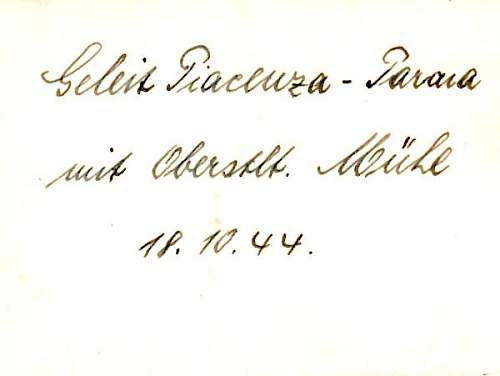 Geleit Piacenza - Parma
mit Oberstlt. Mühe
18.10.44.